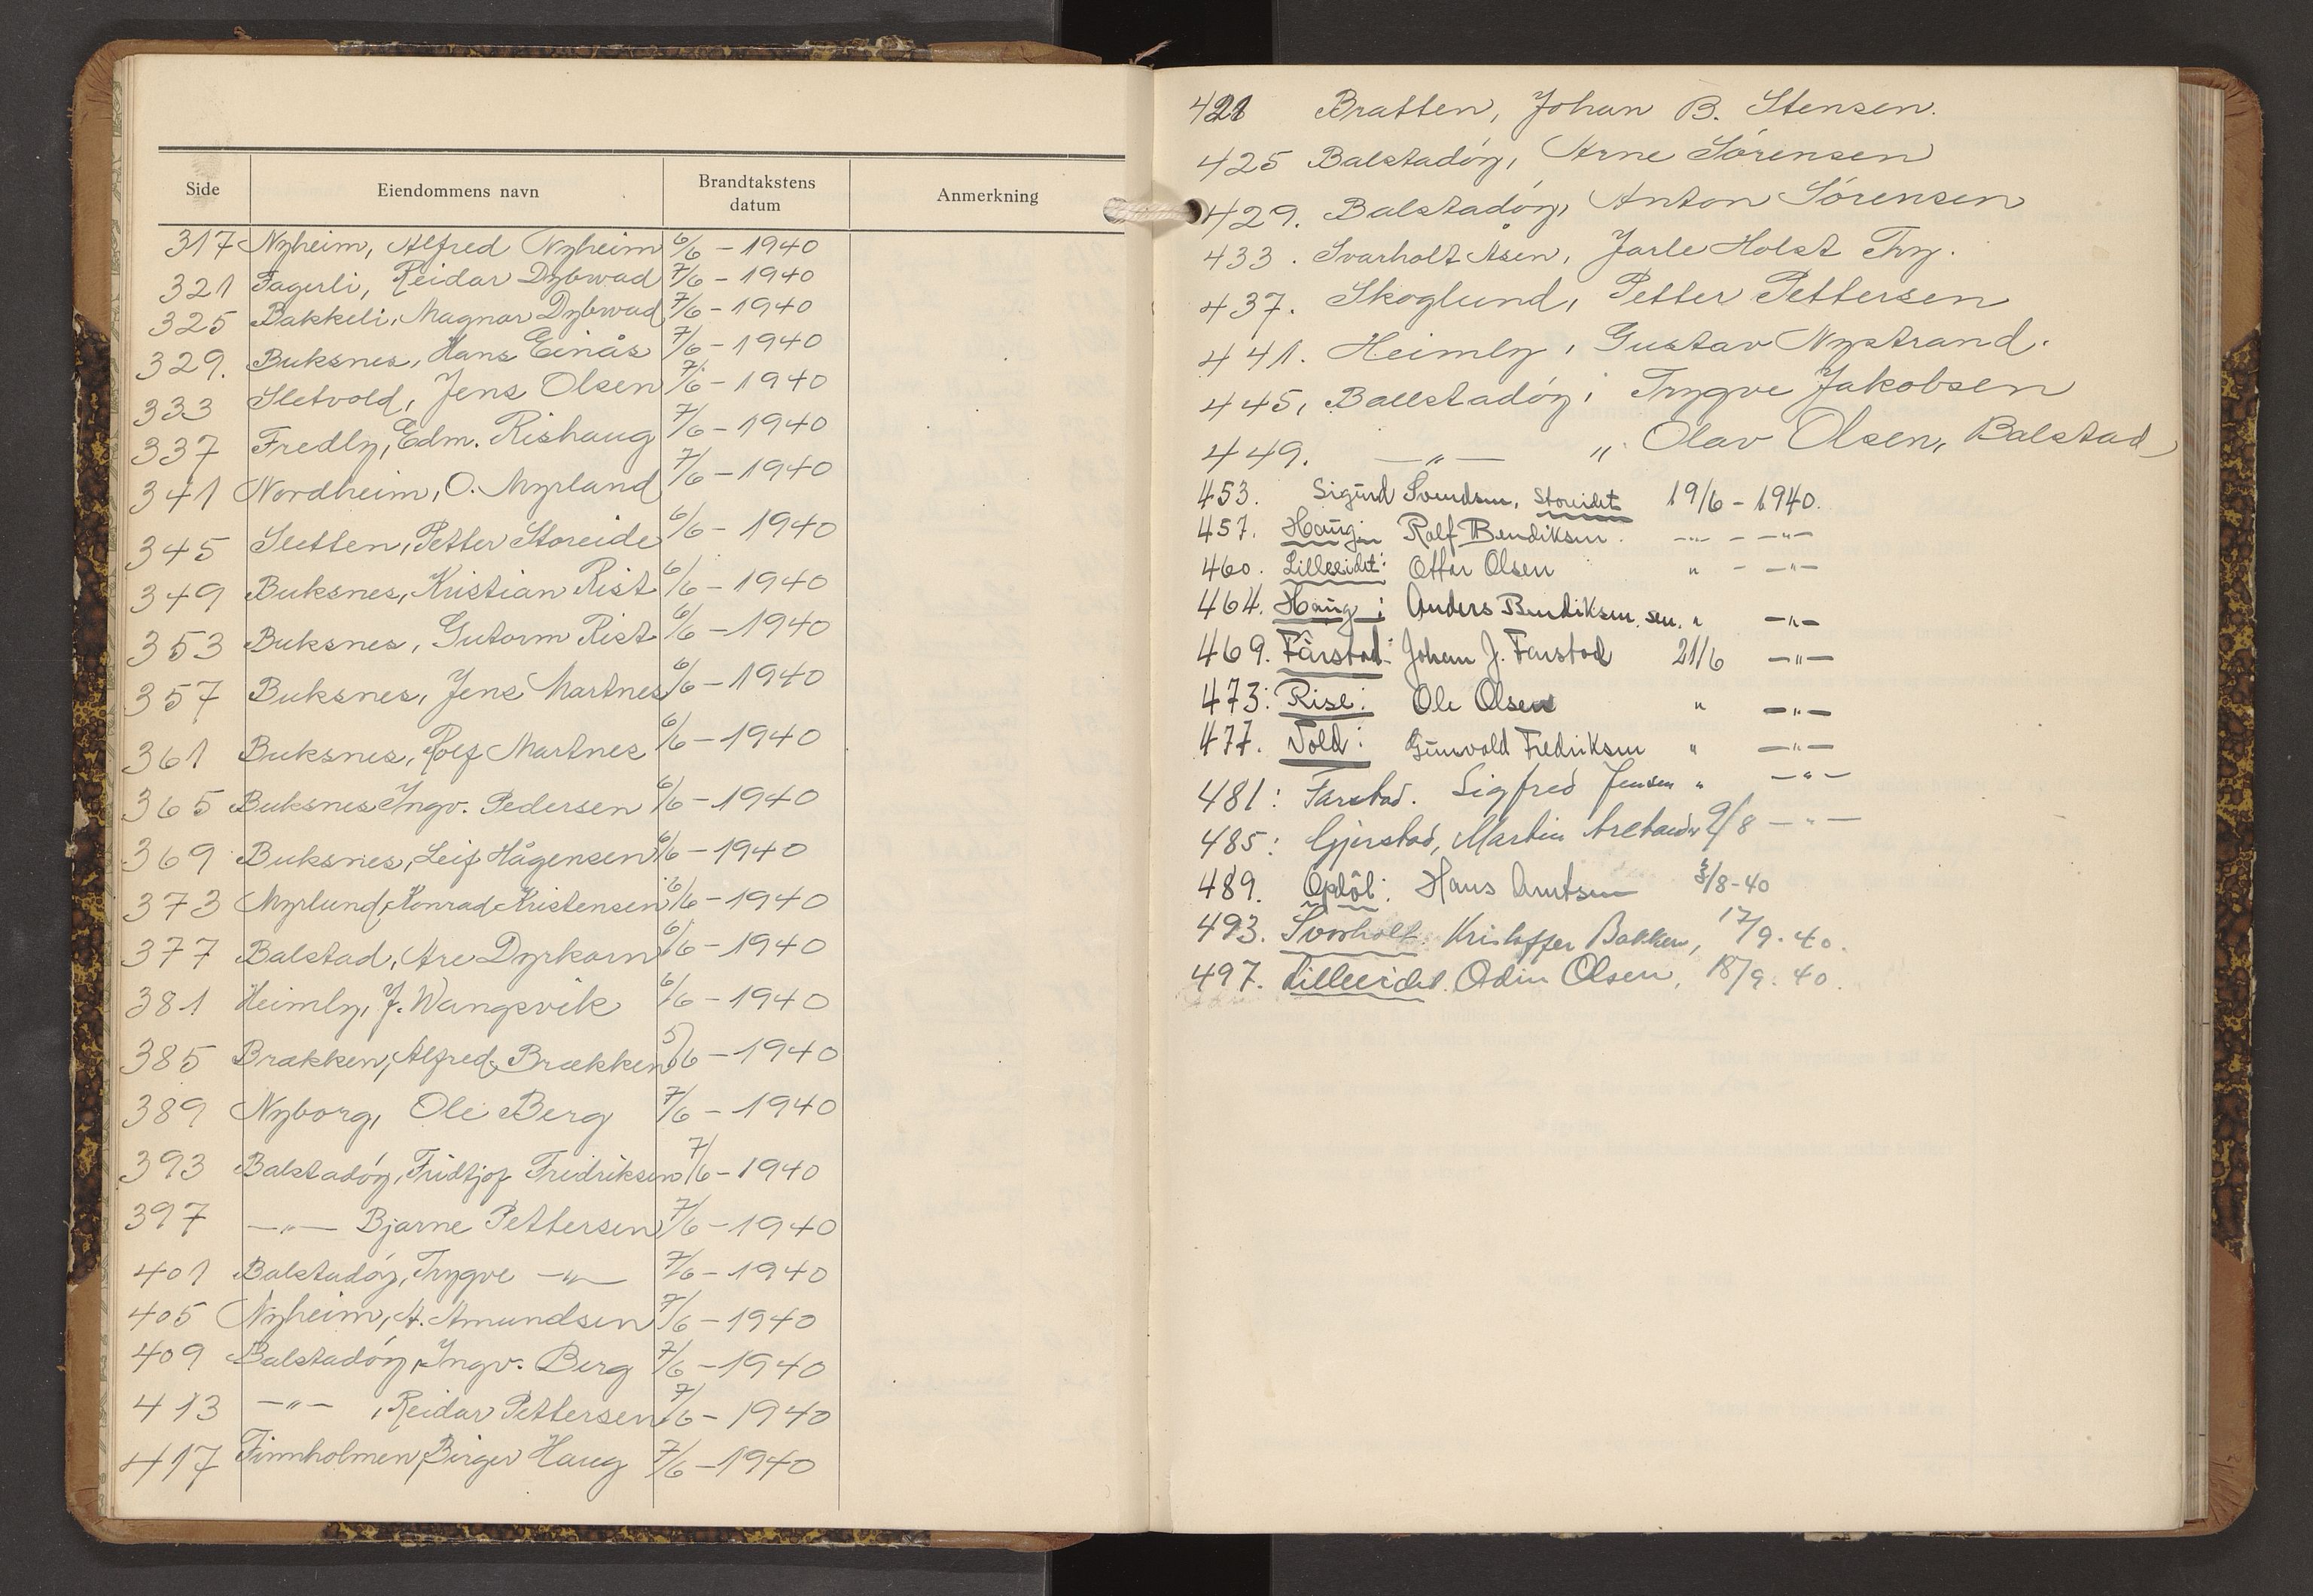 Side Eiendommens navn Brandtakstens datum Anmerkning
317 Nyheim, Alfred Nyheim 6/6 - 1940
321 Fagerli, Reidar Dybwad 7/6 - 1940
325 Bakkeli, Magnar Dybwad 7/6 - 1940
329. Buksnes, Hans Einås 7/6 - 1940
333 Sletvold, Jens Olsen 7/6 - 1940
337 Fredly, Edm. Rishaug 7/6 - 1940
341 Nordheim, O. Myrland 7/6 - 1940
345 Sletten, Petter Storeide 6/6 - 1940
349 Buksnes, Kristian Rist 6/6 - 1940
353 Buksnes, Gutorm Rist 6/6 - 1940
357 Buksnes, Jens Martnes 6/6 - 1940
361 Buksnes, Rolf Martnes 6/6 - 1940
365 Buksnes Ingv. Pedersen 6/6 - 1940
369 Buksnes, Leif Hågensen 6/6 - 1940
373 Myrlund, Konrad Kristensen 6/6 - 1940
377 Balstad, Are Dyrkorn 6/6 - 1940
381 Heimly, J. Wangsvik 6/6 - 1940
385 Brækken, Alfred Brækken 5/6 - 1940
389 Nyborg, Ole Berg 7/6 - 1940
393 Balstadøy, Fridtjof Fredriksen 7/6 - 1940
397 —"— Bjarne Pettersen 7/6 - 1940
401 Balstadøy, Trygve —"— 7/6 - 1940
405 Nyheim, A. Amundsen 7/6 - 1940
409 Balstadøy, Ingv. Berg 7/6 - 1940
413 —"— , Reidar Pettersen 7/6 - 1940
417 Finnholmen, Birger Haug 7/6 - 1940
421 Bratten, Johan B. Stensen.
425 Balstadøy, Arne Sørensen
429. Balstadøy, Anton Sørensen
433. Svarholt Åsen, Jarle Holst Try.
437. Skoglund, Petter Pettersen
441. Heimly, Gustav Nystrand.
445, Ballstadøy, Trygve Jakobsen
449. —"— " Olav Olsen, Balstad
453. Sigurd Svendsen, Storeidet 19/6 - 1940.
457. Haug: Rolf Bendiksen. —"— - —"—
460. Lilleeidet: Ottar Olsen " - —"—
464. Haug: Anders Bendiksen. sen. " —"—
469. Farstad: Johan J. Farstad 21/6 —"—
473: Rise: Ole Olsen " —"—
477. Vold: Gunvald Fredriksen " —"—
481: Farstad. Sigfred Jensen " —"—
485: Gjerstad, Martin 9/8 —"—
489. Opdøl: Hans Arntsen /8-40
493. Svarholt. Kristoffer Bakken, 17/9. 40.
497. Lilleeidet. Odin Olsen, 18/9. 40.